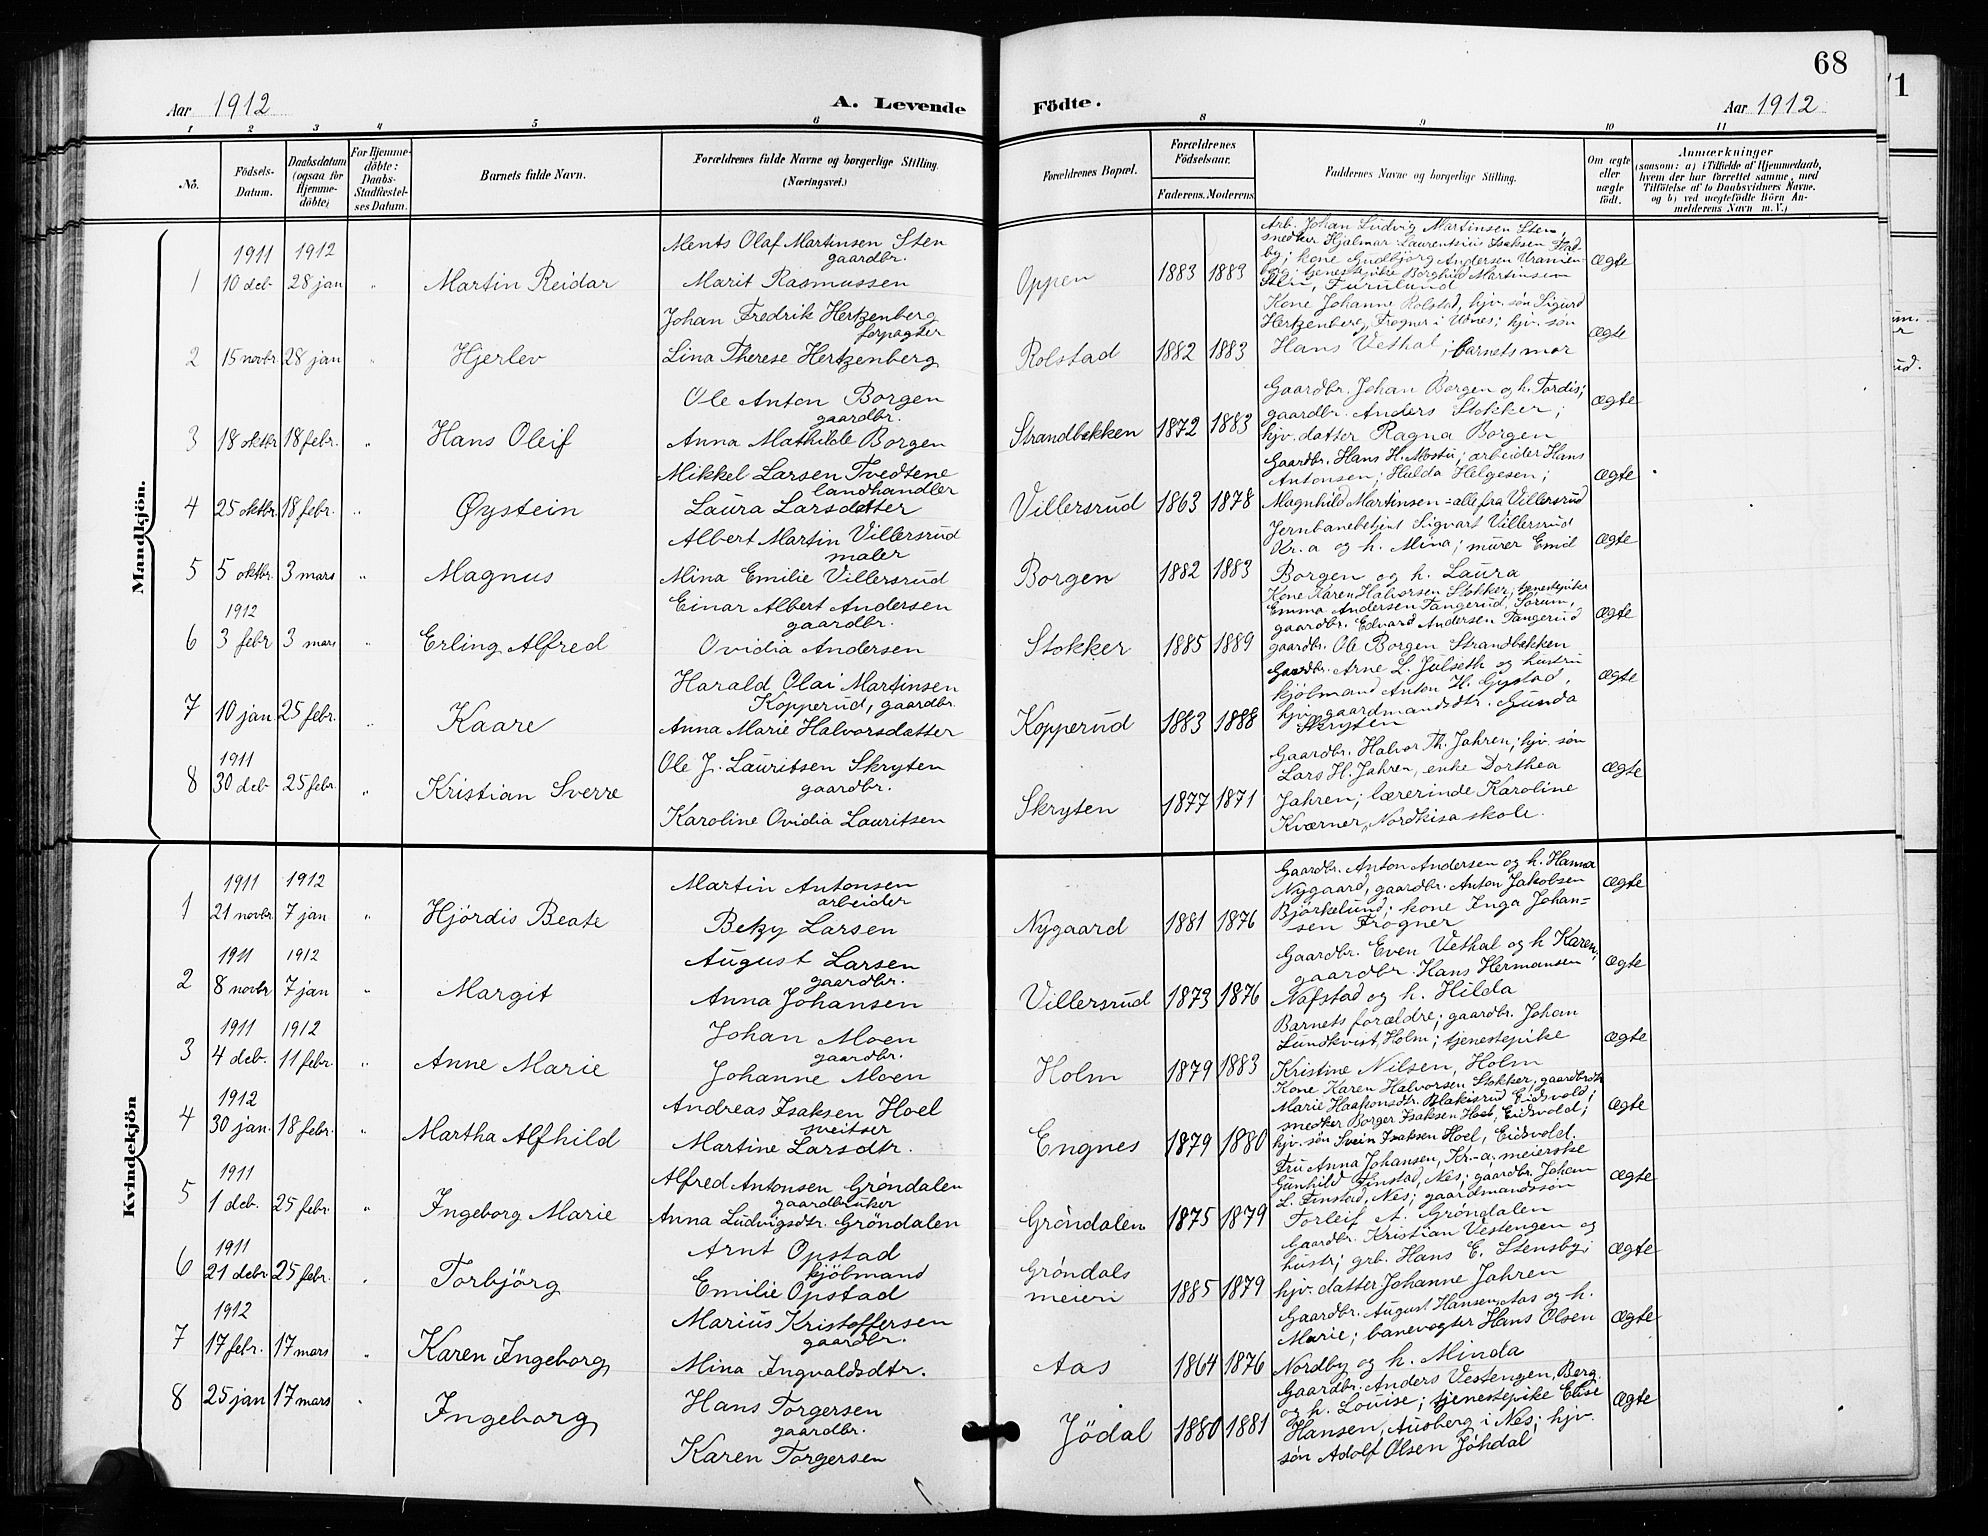 68
71
Aar 1912
A. Levende
Födte.
Aar 1912
1 2 3 4 5 6 8 9 10 11
No.
Födsels-
Datum.
Daabsdatum
(ogsaa for
Hjemme-
döbte)
For Hjemme-
döbte:
Daabs-
Stadfæstel-
ses Datum.
Barnets fulde Navn.
Forældrenes fulde Navne og borgerlige Stilling.
(Næringsvei.)
Forældrenes Bopæl.
Forældrenes
Födselsaar.
Faderens. Moderens.
Faddernes Navne og borgerlige Stilling.
Om ægte
eller
uægte
födt.
Anmærkninger
(saasom: a) i Tilfælde af Hjemmedaab,
hvem der har forrettet samme, med
Tilföielse af to Daabsvidners Navne.
og b) ved uægtefödte Börn An-
melderens Navn m.V.)
Mandkjön.
1911 1912
1 10 deb 28 jan " Martin Reidar
Ments Olaf Martinsen Sten
gaardbr.
Marit Rasmussen
Oppen 1883 1883
Arb. Johan Ludvig Martinsen Sten,
snedker Hjalmar Laurentsius Isaksen Stad-
by; kone Gudbjørg Andersen Uranien-
borg; tjenestepike Borghild Martinsen
Sten, Furulund
Ægte
2 15 novbr 28 jan " Hjerlev
Johan Fredrik Hertzenberg
forpagter
Lina Therese Hertzenberg
Rolstad 1882 1883
Kone Johanne Rolstad, hjv. søn Sigurd
Hertzenberg, Frogner i Udnes; hjv. søn
Hans Vethal; barnets mor
Ægte
3 18 oktbr 18 febr. " Hans Oleif
Ole Anton Borgen
gaardbr.
Anna Mathilde Borgen
Strandbækken 1872 1883
Gaardbr. Johan Borgen og h. Tordis;
gaardbr. Anders Stokker;
hjv. datter Ragna Borgen
Ægte
4 25 oktbr. 18 febr. " Øystein
Mikkel Larsen Tvedtene
landhandler
Laura Larsdatter
Villersrud 1863 1878
Gaardbr. Hans H. Mostu; arbeider Hans
Antonsen; Hulda Helgesen;
Magnhild Martinsen = alle fra Villersrud
Ægte
5 5 oktbr. 3 mars " Magnus
Albert Martin Villersrud
maler
Mina Emilie Villersrud
Borgen 1882 1883
Jernbanebetjent Sigvart Villersrud
Kr.a og h. Mina; murer Emil
Borgen og h. Laura
Ægte
1912
6 3 febr 3 mars " Erling Alfred
Einar Albert Andersen
gaardbr.
Ovidia Andersen
Stokker 1885 1889
Kone Karen Halvorsen Stokker; tjenestepike
Emma Andersen Tangerud, Sørum,
gaardbr. Edvard Andersen Tangerud
gaardbr. Ole Borgen Strandbækken
Ægte
7 10 jan 25 febr. " Kaare
Harald Olai Martinsen
Kopperud, gaardbr.
Anna Marie Halvorsdatter
Kopperud 1883 1888
Gaardbr. Arne L. Julseth og hustru
kjøbmand Anton H. Gystad,
hjv. gaardmandsdtr. Gunda
Skryten
Ægte
1911
8 30 deb 25 febr. " Kristian Sverre
Ole J. Lauritsen Skryten
gaardbr.
Karoline Ovidia Lauritsen
Skryten 1877 1871
Gaardbr. Halvor Th. Jahren; hjv. søn
Lars H. Jahren, enke Dorthea
Jahren; lærerinde Karoline
Kværner, Nordkisa skole.
Ægte
Kvindekjön
1911 1912
1 21 novbr. 7 jan " Hjördis Beate
Martin Antonsen
arbeider
Betzy Larsen
Nygaard 1881 1876
Gaardbr. Anton Andersen og h. Hanna
Nygaard, gaardbr. Anton Jakobsen
Björkelund; kone Inga Johan=
sen Frogner
Ægte
1911 1912
2 8 novbr 7 jan " Margit
August Larsen
gaardbr.
Anna Johansen
Villersrud 1873 1876
Gaardbr. Even Vethal og h Karen,
gaardbr. Hans Hermansen
Nafstad og h. Hilda
Ægte
1911 1912
3 4 deb. 11 febr. " Anne Marie
Johan Moen
gaardbr.
Johanne Moen
Holm 1879 1883
Barnets forældre; gaardbr. Johan
Lundkvist, Holm; tjenestepike
Kristine Nilsen, Holm
Ægte
1912
4 30 jan. 18 febr. " Martha Alfhild
Andreas Isaksen Hoel
sveitser
Martine Larsdtr.
Engnes 1879 1880
Kone Karen Halvorsen Stokker, gaardbrdtr
Marie Haakonsdtr. Blakisrud Eidsvold;
snedker Borger Isaksen Hoel, Eidsvold;
hjv. søn Svein Isaksen Hoel, Eidsvold.
Ægte
1911
5 1 deb. 25 febr. " Ingeborg Marie
Alfred Antonsen Gröndalen
gaardbruker
Anna Ludvigsdtr. Gröndalen
Gröndalen 1875 1879
Fru Anna Johansen, Kr.-a. meierske
Gunhild Finstad, Nes; gaardbr. Johan
L. Finstad, Nes; gaardmandssøn
Torleif A. Gröndalen
Ægte
1911
6 21 debr. 25 febr. " Torbjörg
Arnt Opstad
kjöbmand
Emilie Opstad
Gröndals
meieri 1885 1879
Gaardbr. Kristian Vestengen og
hustr; grb. Hans E. Stensby;
hjv. datter Johanne Jahren
Ægte
1912
7 17 febr. 17 mars " Karen Ingeborg
Marius Kristoffersen
gaardbr.
Mina Ingvaldsdtr.
Aas 1864 1876
Gaardbr. August Hansen Aas og h.
Marie; banevogter Hans Olsen
Nordby og h. Minda
Ægte
8 25 jan 17 mars " Ingeborg
Hans Torgersen
gaardbr.
Karen Torgersen
Jödal 1880 1881
Gaardbr. Anders Vestengen, Berg
og h. Louise; tjenestepike Elise
Hansen, Ausberg i Nes; hjv.
søn Adolf Olsen Jöhdal
Ægte